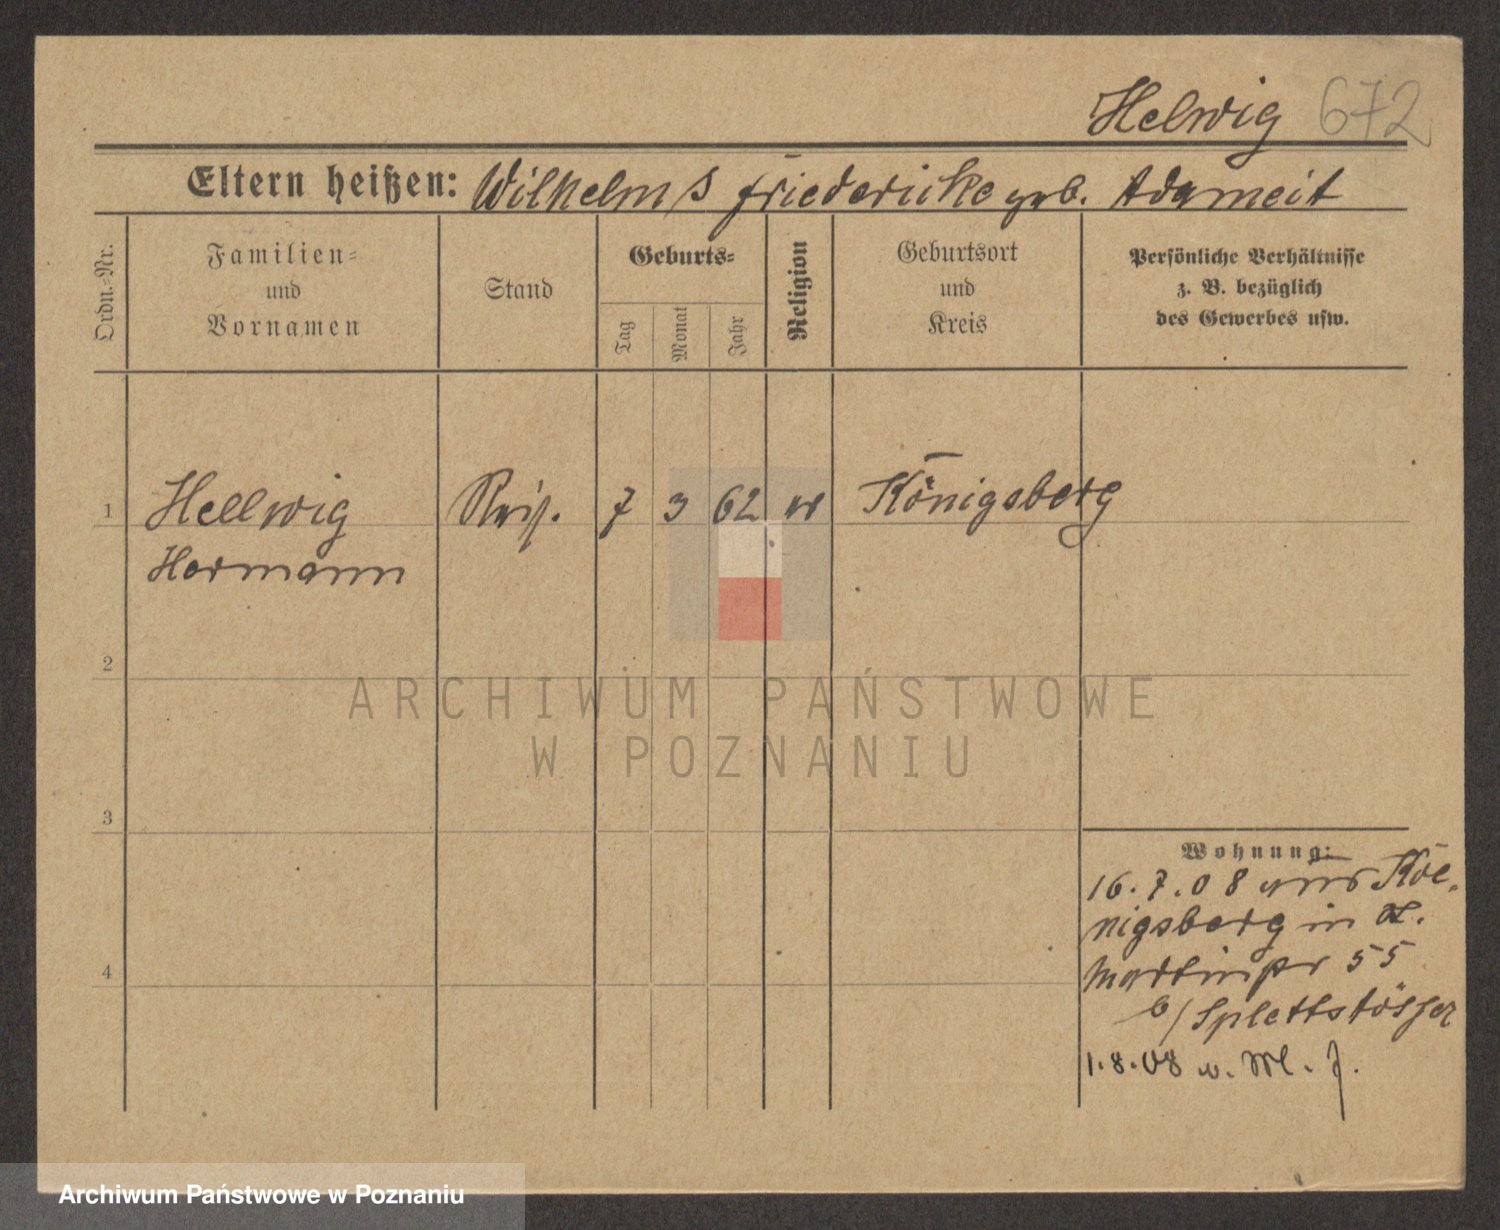 Helwig 672
Eltern heißen: Wilhelm & Friedericke geb. Adameit
Ordn.-Nr.
Familien-
und
Vornamen
Stand
Geburts-
Tag
Monat
Jahr
Religion
Geburtsort
und
Kreis
Persönliche Verhältnisse
z. B. bezüglich
des Gewerbes usw.
1 Hellwig 7 3 62 Königsberg
Hermann
2
ARCHIWUM PAŃSTWOWE
W POZNANIU
3
Wohnung:
16.7.08 Kö-
nigsberg in
Martinstr 55
b/ Splettstösser
1.8.08
4
Archiwum Państwowe w Poznaniu